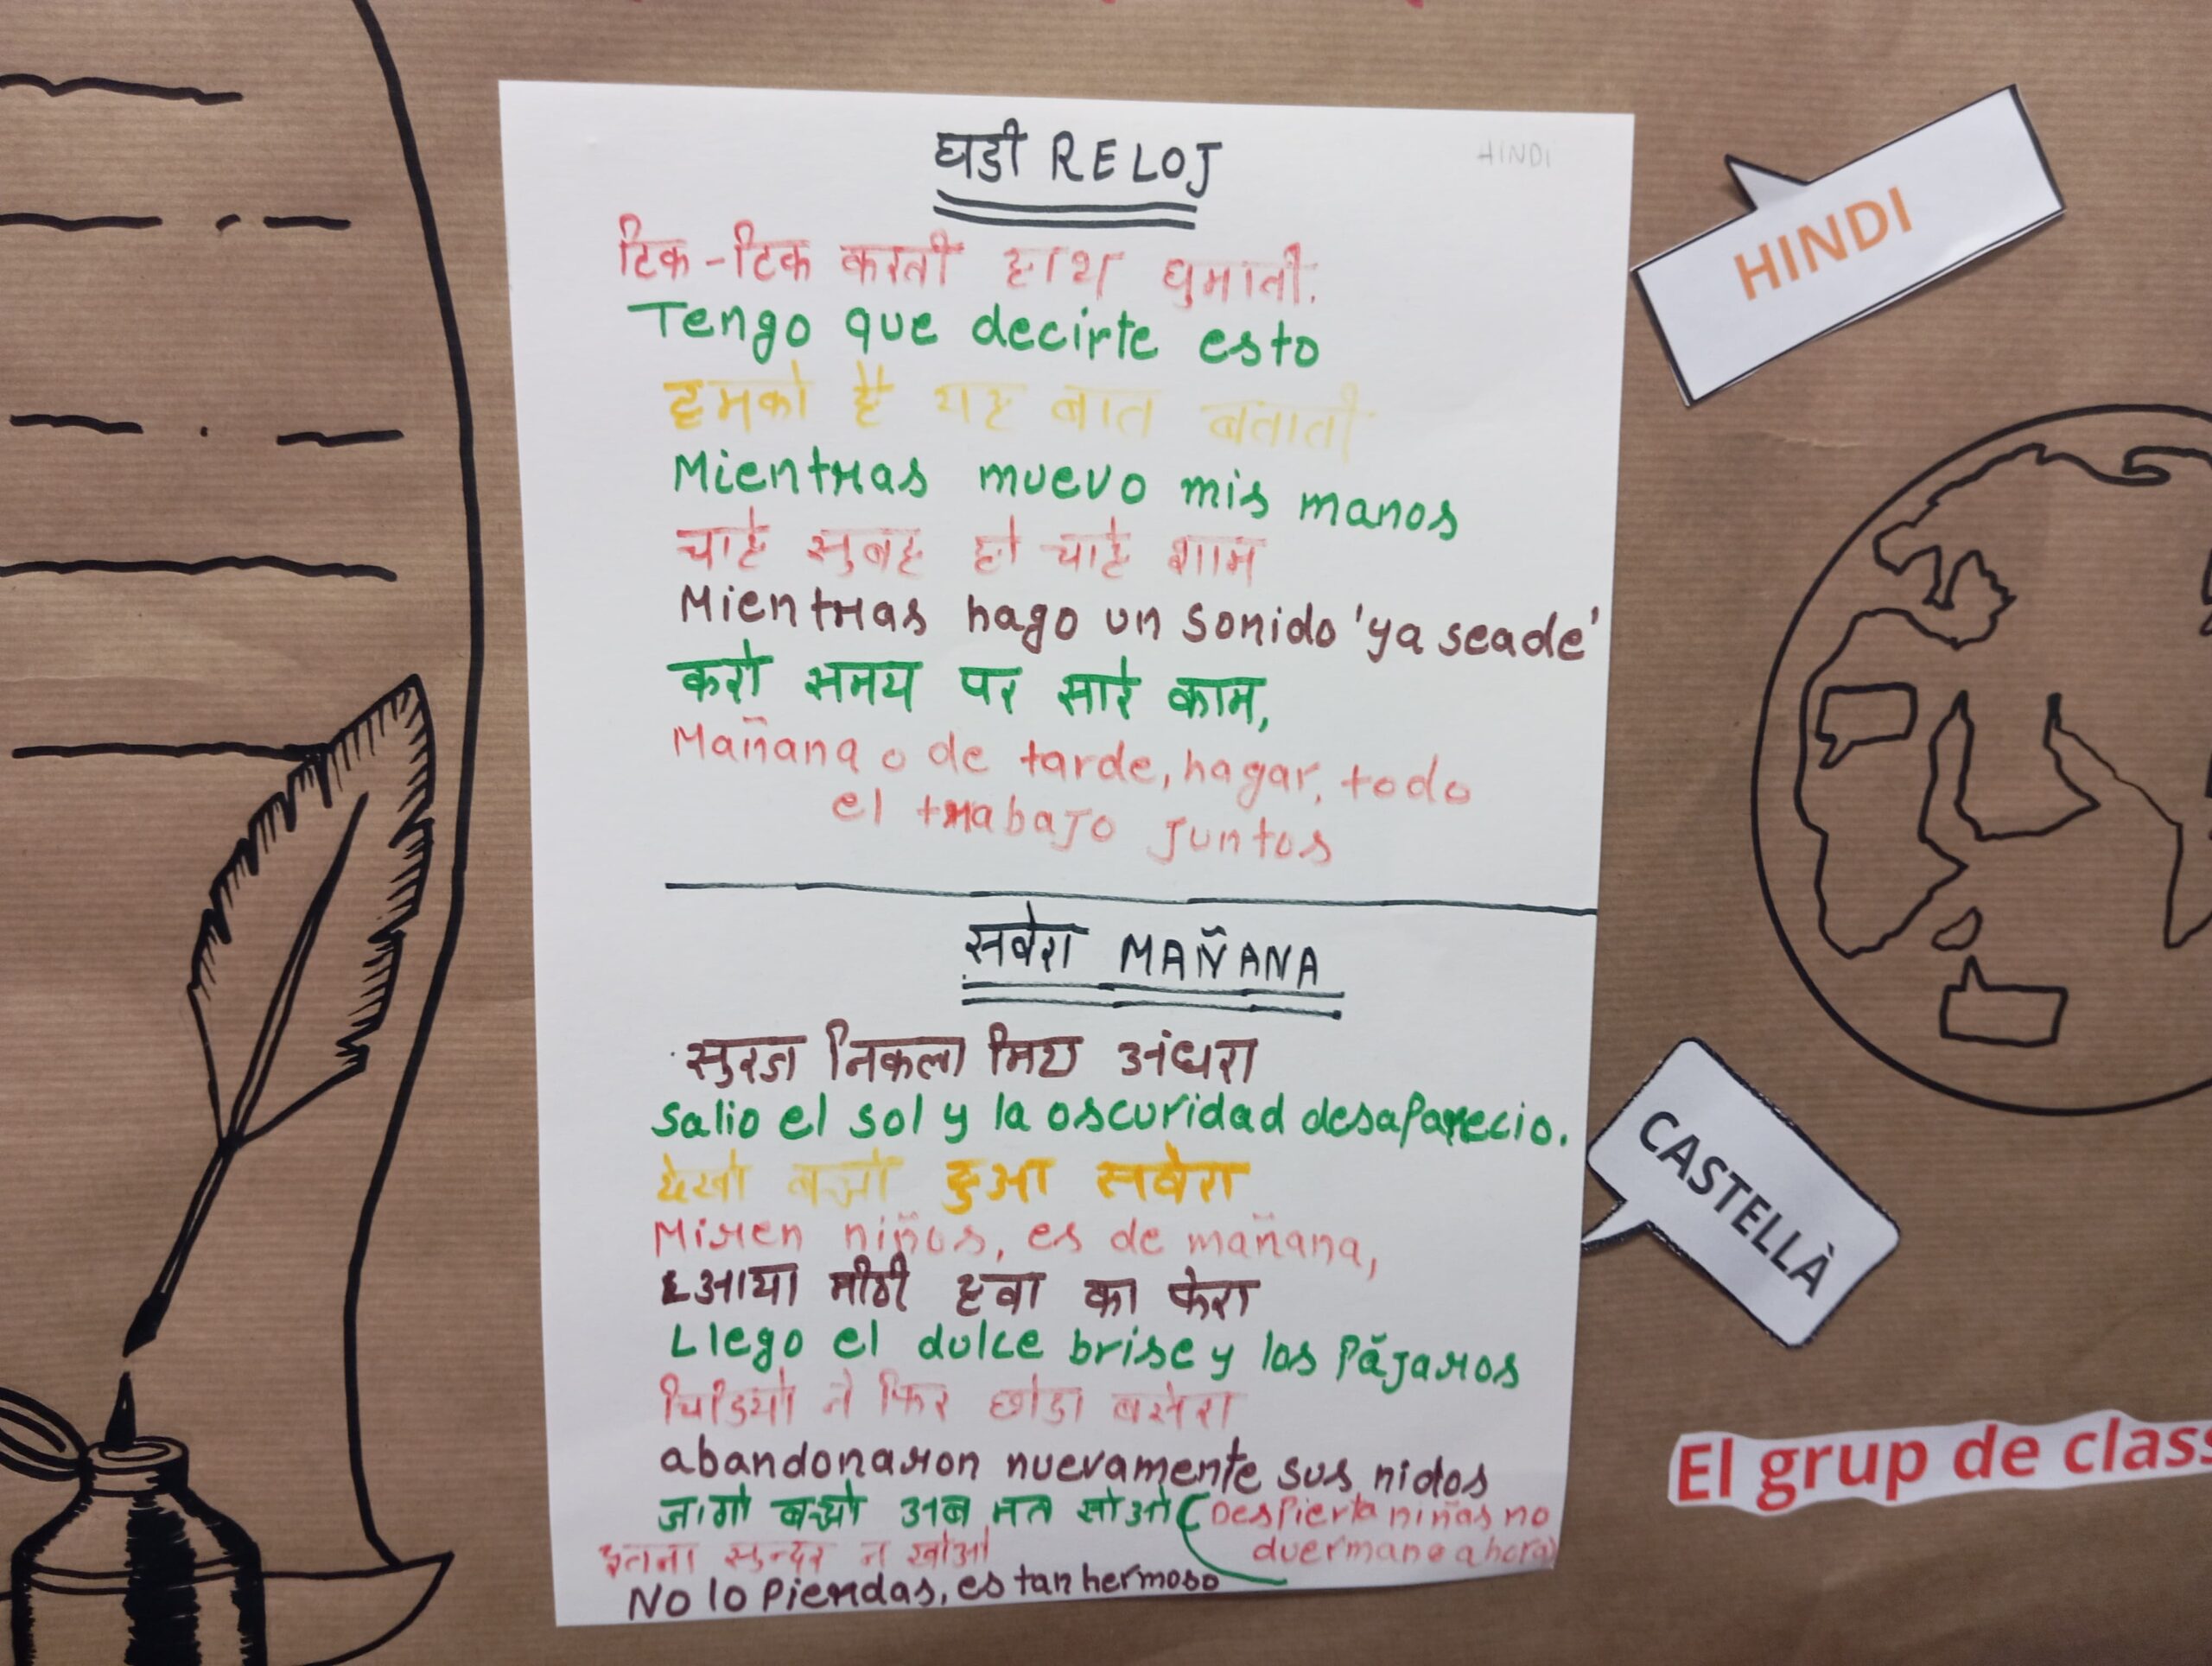 घडी RELOJ
HINDI
टिक-टिक करती हाथ घुमाती.
Tengo que decirte esto
हमको है यह बात बताती
Mientras muevo mis manos
चाहे सुबह हो चाहे शाम
Mientras hago un sonido 'ya seade'
करो समय पर सारे काम,
Mañana o de tarde, hagar, todo
el trabajo juntos
सवेरा MAÑANA
सुरज निकला मिटा अंधेरा
Salio el sol y la oscuridad desaparecio.
देखो बच्चो हुआ सवेरा
Miren niños, es de mañana,
आया मीठी हवा का फेरा
Llego el dulce brise y los Pǎjaros
चिडियो ने फिर छोडा बसेरा
abandonaron nuevamente sus nidos
जागो बच्चो अब मत सोओ (Despierta niñas no
duermane ahora)
इतना सुन्दर न खोओ
No lo Pierdas, es tan hermoso
HINDI
CASTELLÀ
El grup de class